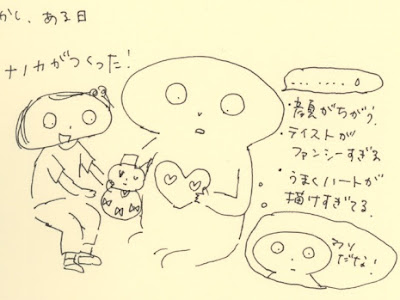 かし、ある日
ナノカがつくった！
．．．．．．。
・顔がちがう。
・テイストが
ファンシーすぎる
・うまくハートが
描けすぎてる。
ウソ
だな！